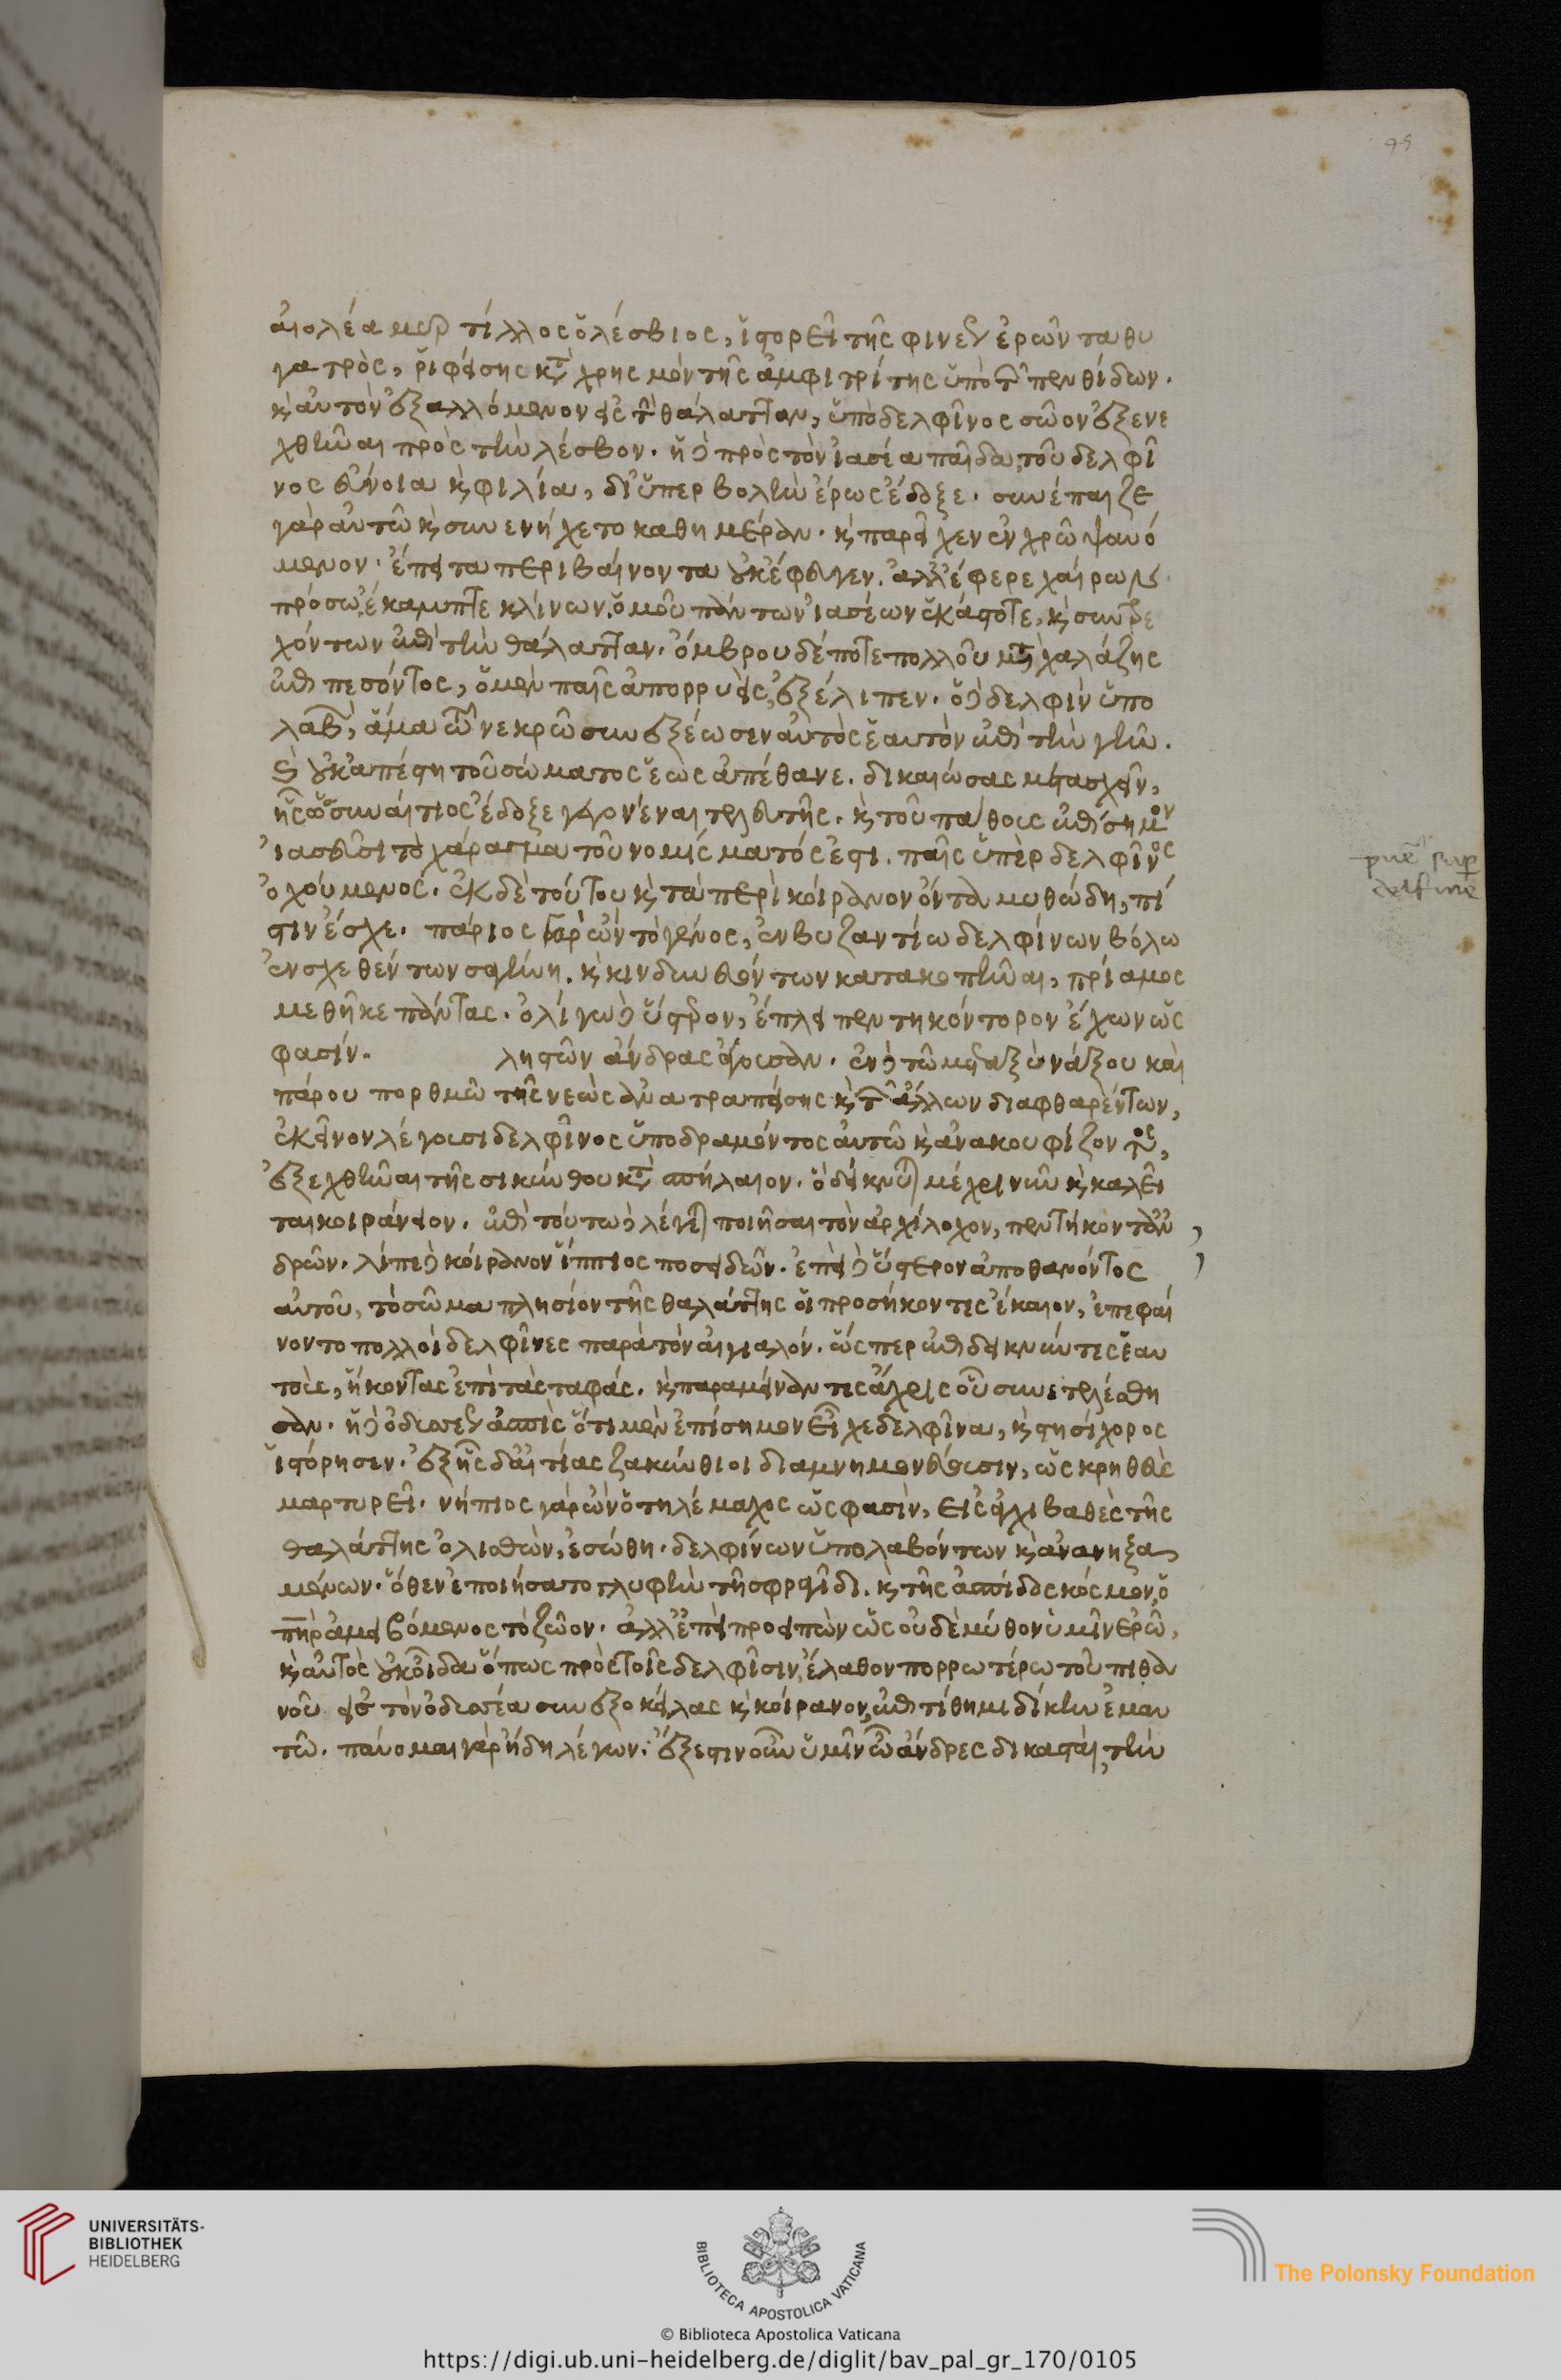 95
αἰολέα μυρτίλλος ὁ λέσβιος, ἱστορεῖ τῆς φινέως ἐρῶντα θυ
γατρὸς, ῥιφείσης κατὰ χρησμὸν τῆς ἀμφιτρίτης ὑπὸ τῶν πενθιδῶν.
καὶ αὐτὸν ἐξαλλόμενον εἰς τὴν θάλατταν, ὑπὸ δελφῖνος σῶον ἐξενε
χθῆναι πρὸς τὴν λέσβον. ἡ δὲ πρὸς τὸν ἰασέα παῖδα, τοῦ δελφῖ
νος εὔνοια καὶ φιλία, δι' ὑπερβολὴν ἔρως ἔδοξε. συνέπαιζε
γὰρ αὐτῶ καὶ συνενήχετο καθημέραν. καὶ παρεῖχεν ἐν χρῶ ψαυό
μενον. ἔπειτα περιβαίνοντα οὐκ ἔφευγεν. ἀλλ' ἔφερε χαίρων
πρόσω, ἔκαμπτε κλίνων, ὁμοῦ πάντων ἰασέων ἑκάστοτε, καὶ συντρε
χόντων ἐπὶ τὴν θάλατταν. ὄμβρου δέ ποτε πολλοῦ μετὰ χαλάζης
ἐπιπεσόντος, ὁ μὲν παῖς ἀπορρυεὶς, ἐξέλιπεν. ὁ δὲ δελφὶν ὑπο
λαβὼν, ἅμα τῶ νεκρῶ συνεξέωσεν αὐτὸς ἑαυτὸν ἐπὶ τὴν γῆν.
καὶ οὐκ ἀπέστη τοῦ σώματος ἕως ἀπέθανε. δικαιώσας μετασχεῖν,
ἧς ὡς συναίτιος ἔδοξε γεγονέναι τελευτῆς. καὶ τοῦ πάθους ἐπίσημον
ἰασεῦσι τὸ χάραγμα τοῦ νομίσματός ἐστι. παῖς ὑπὲρ δελφῖνος
ὀχούμενος. ἐκ δὲ τούτου καὶ τὰ περὶ κοίρανον ὄντα μυθώδη, πί
στιν ἔσχε. πάριος γὰρ ὢν τὸ γένος, ἐν βυζαντίω δελφίνων βόλω
ἐνσχεθέντων σαγήνη. καὶ κινδυνευόντων κατακοπῆναι, πρίαμος
μεθῆκε πάντας. ὀλίγω δὲ ὕστερον, ἔπλει πεντηκόντορον ἔχων ὥς
φασίν. ληστῶν ἄνδρας ἄγουσαν. ἐν δὲ τῶ μεταξὺ νάξου καὶ
πάρου πορθμῶ τῆς νεὼς ἀνατραπείσης καὶ τῶν ἄλλων διαφθαρέντων,
ἐκεῖνον λέγουσι δελφῖνος ὑποδραμόντος αὐτῶ καὶ ἀνακουφίζοντος,
ἐξεχθῆναι τῆς σικύνθου κατὰ σπήλαιον. ὃ δείκνυται μέχρι νῦν καὶ καλεῖ
ται κοιράνειον. ἐπὶ τούτω δὲ λέγεται ποιῆσαι τὸν ἀρχίλοχον, πεντήκοντ' ἀν
δρῶν. λίπε δὲ κοίρανον ἵππιος ποσειδῶν. ἐπεὶ δὲ ὕστερον ἀποθανόντος
αὐτοῦ, τὸ σῶμα πλησίον τῆς θαλάττης οἱ προσήκοντες ἔκαιον, ἐπεφαί
νοντο πολλοὶ δελφῖνες παρὰ τὸν αἰγιαλόν. ὥσπερ ἐπιδεικνύντες ἑαυ
τοὺς, ἥκοντας ἐπὶ τὰς ταφάς. καὶ παραμείναντες ἄχρις οὗ συνετελέσθη
σαν. ἡ δὲ ὀδυσσέως ἀσπὶς ὅτι μὲν ἐπίσημον εἶχε δελφῖνα, καὶ στησίχορος
ἱστόρησεν. ἐξ ἧς δ' αἰτίας ζακύνθιοι διαμνημονεύουσιν, ὡς κρηθεὺς
μαρτυρεῖ. νήπιος γὰρ ὢν ὁ τηλέμαχος ὥς φασὶν, εἰς ἀγχιβαθὲς τῆς
θαλάττης ὀλισθὼν, ἐσώθη. δελφίνων ὑπολαβόντων καὶ ἀνανηξα
μένων. ὅθεν ἐποιήσατο γλυφὴν τῆ σφραγῖδι. καὶ τῆς ἀσπίδος κόσμον, ὁ
πατὴρ ἀμειβόμενος τὸ ζῶον. ἀλλ' ἐπεὶ προειπὼν ὡς οὐδὲ μῦθον ὑμῖν ἐρῶ,
καὶ αὐτὸς οὐκ οἶδα ὅπως πρὸς τοῖς δελφῖσιν, ἔλαθον πορρωτέρω τοῦ πιθα
νοῦ εἰς τὸν ὀδυσσέα συνεξοκείλας καὶ κοίρανον, ἐπιτίθημι δίκην ἐμαυ
τῶ. παύομαι γὰρ ἤδη λέγων. ἔξεστιν οὖν ὑμῖν ὦ ἄνδρες δικασταὶ, τὴν
puer super
delfine
UNIVERSITÄTS-
BIBLIOTHEK
HEIDELBERG
BIBLIOTECA APOSTOLICA VATICANA
The Polonsky Foundation
© Biblioteca Apostolica Vaticana
https://digi.ub.uni-heidelberg.de/diglit/bav_pal_gr_170/0105